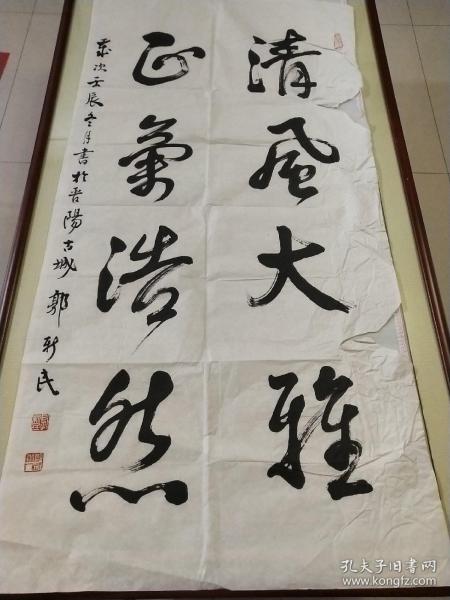 清風大雅
正氣浩然
歲次壬辰冬月書於晋陽古城郭新民
孔夫子旧书网
www.kongfz.com